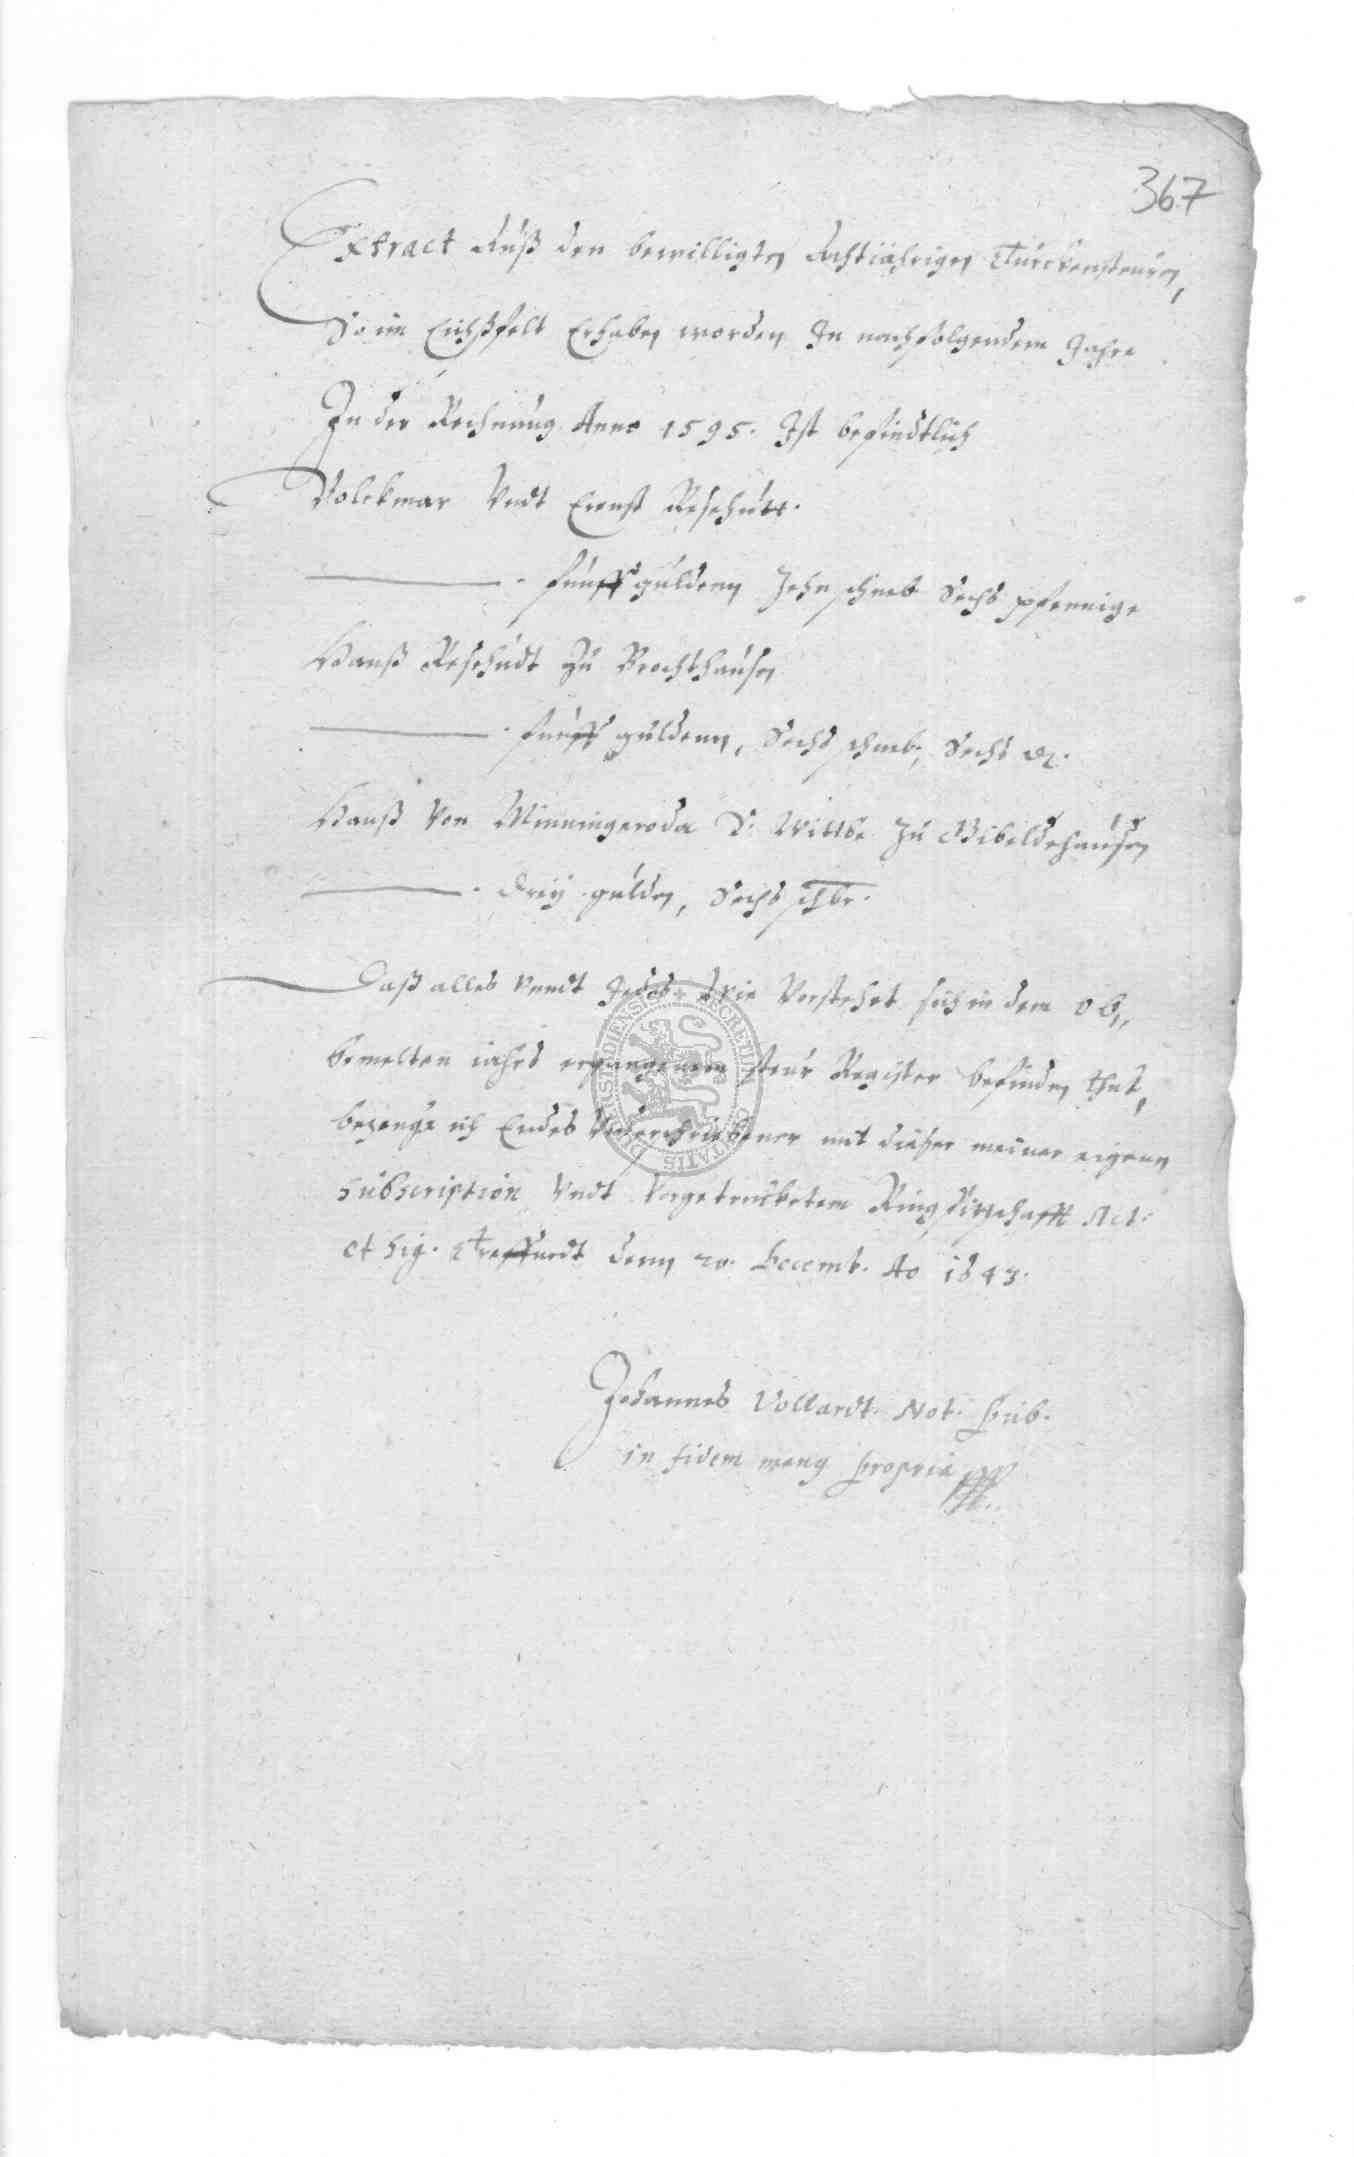 367
Extract Auß den bewilligten Achtiährigen Türckensteuren,
So im Eichßfelt Erhaben worden In nachfolgendem Jahre
In der Rechnung Anno 1595. Ist befindtlich
Volckmar Vndt Ernst Reschutt.
fünff gulden Zehn schneb Sechs pfennige
Hanß Reschudt Zu Brochthausen
fünff gulden, Sechs schneb, Sechs d.
Hanß Von Minningeroda S. Wittbe Zu Bibeldehausen
Dreÿ gulden, Sechs
Daß alles Vnndt Jedes Wie Vorstehet sich in dem ob„
bemelten iahrs ergangenem steur Register befinden thut,
bezeuge ich Endes Vnderschriebener mit dießer meiner eigenen
Subscription Vndt Vorgetrucketem Ringpittschafft Act:
et sig. Treffurdt denn 20. Decemb. Ao 1643.
Johannes Vollandt. Not. Pub.
in fidem manu propria
SECRETUM CIVITATIS DUDERSTADIENSIS